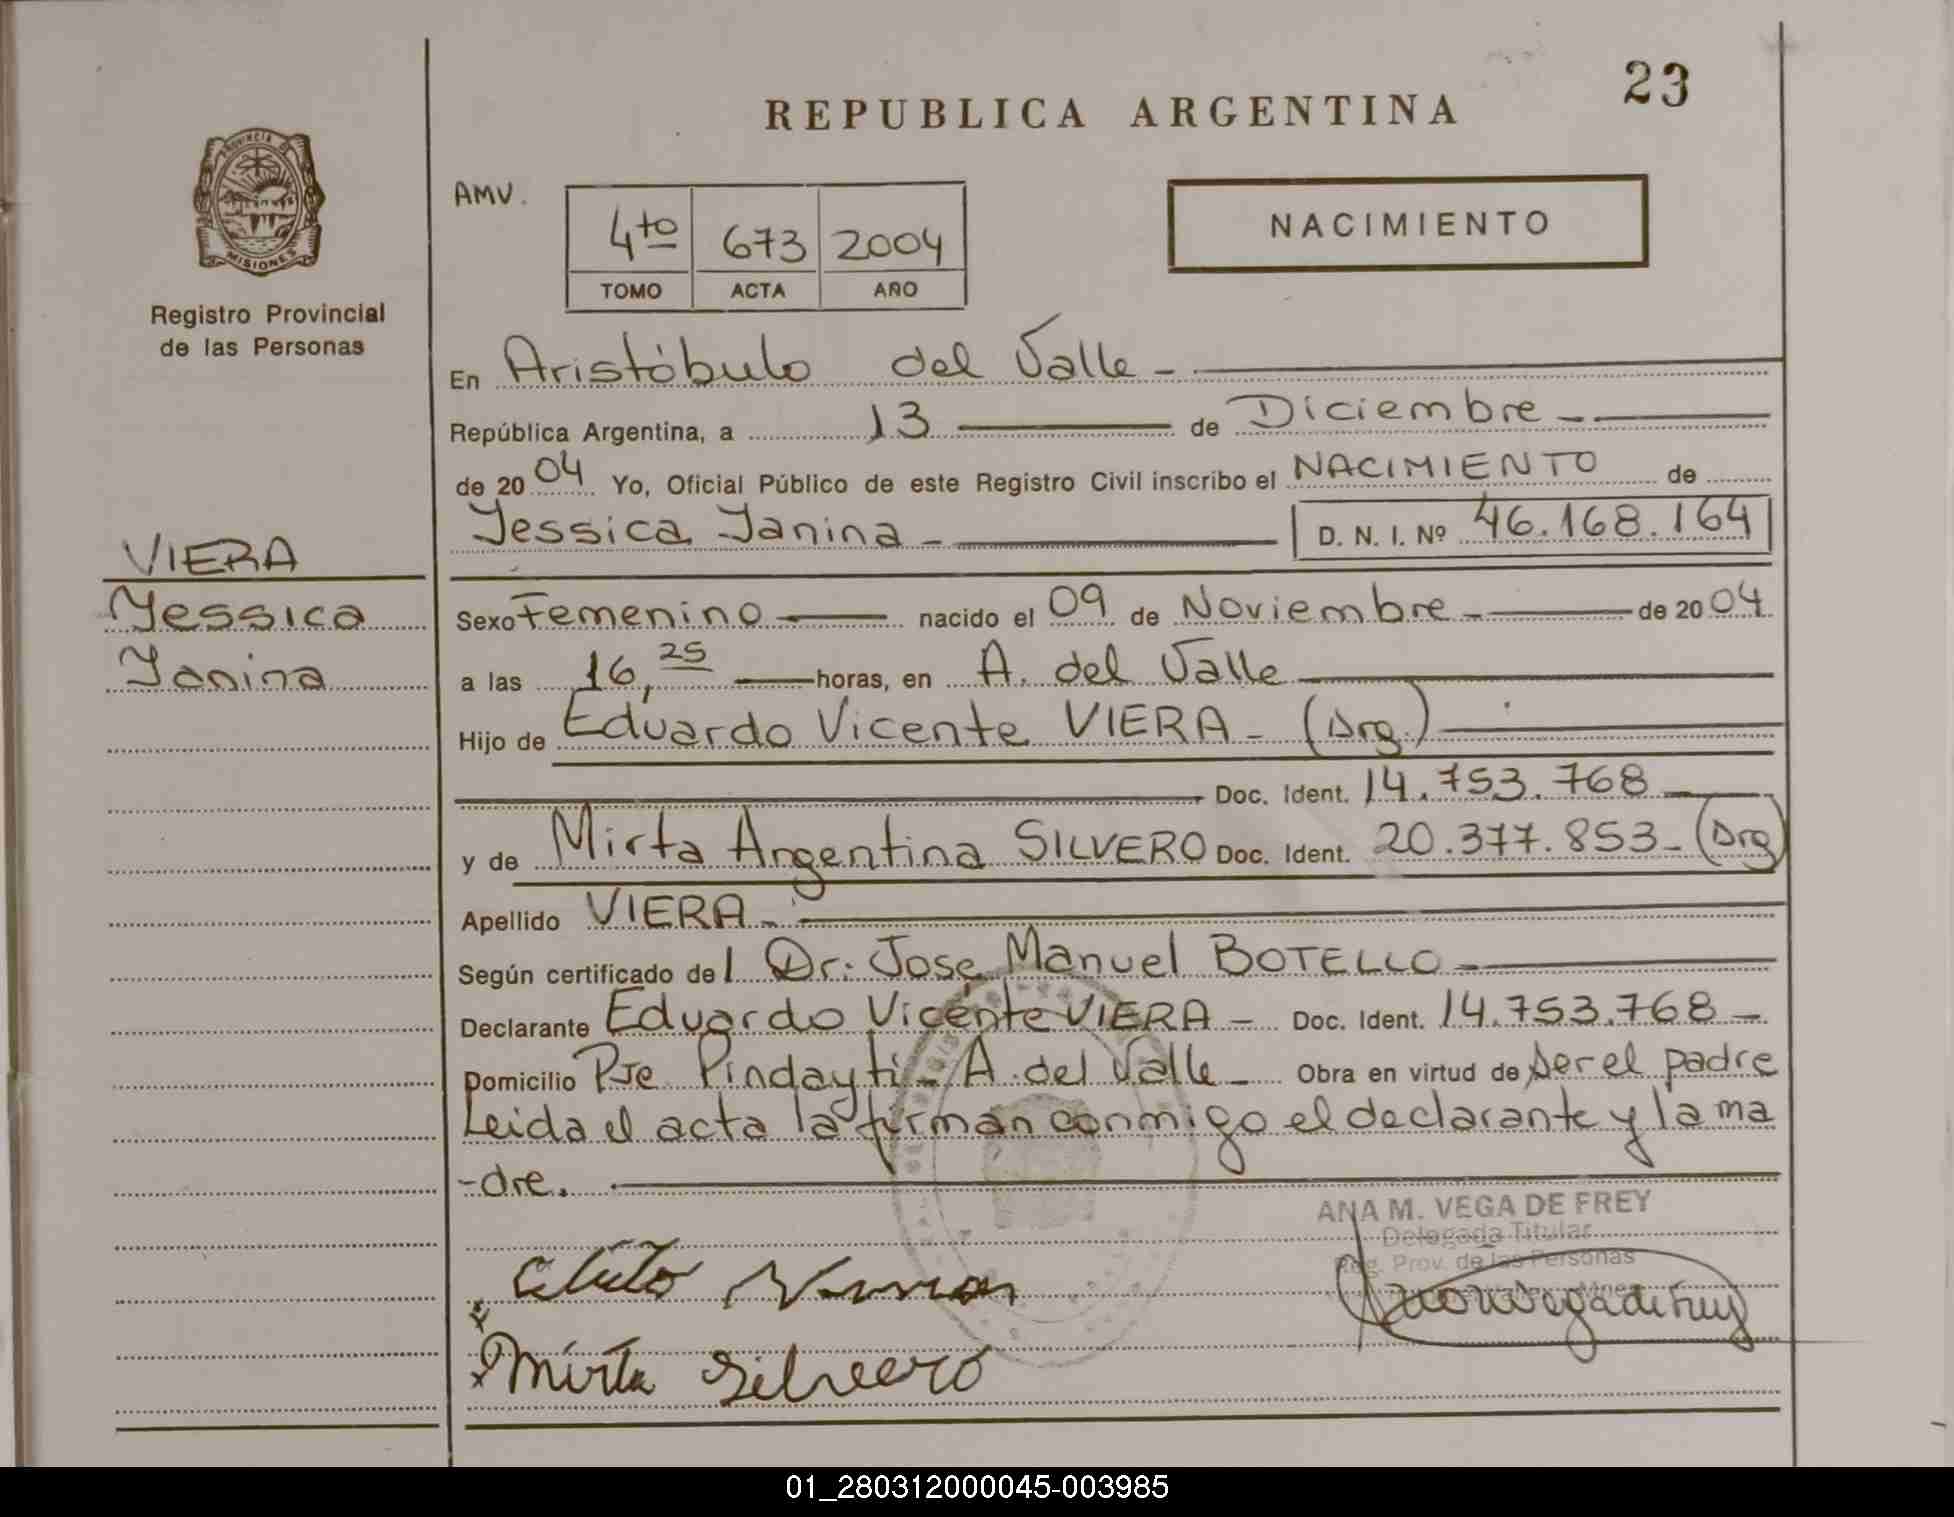 23
REPUBLICA ARGENTINA
PROVINCIA DE
MISIONES
Registro Provincial
de las Personas
AMV.
4to 673 2004
TOMO ACTA AÑO
NACIMIENTO
En Aristóbulo del Valle -
República Argentina, a 13 de Diciembre -
de 20 04 Yo, Oficial Público de este Registro Civil inscribo el NACIMIENTO de
Yessica Yanina - D. N. I. Nº 46.168.164
VIERA
Yessica
Yanina
Sexo Femenino nacido el 09 de Noviembre - de 20 04
a las 16,25 horas, en A. del Valle
Hijo de Eduardo Vicente VIERA - (Arg.)
Doc. Ident. 14.753.768
y de Mirta Argentina SILVERO Doc. Ident. 20.377.853 - (Arg)
Apellido VIERA -
Según certificado del Dr. José Manuel BOTELLO -
Declarante Eduardo Vicente VIERA - Doc. Ident. 14.753.768 -
Domicilio Pje Pindayti - A. del Valle - Obra en virtud de ser el padre
Leida el acta la firman conmigo el declarante y la ma
-dre.
ANA M. VEGA DE FREY
Delegada Titular
Reg. Prov. de las Personas
Mirta Silveero
01_280312000045-003985